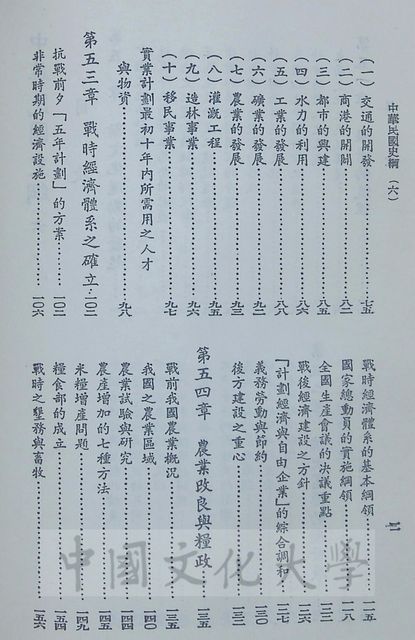 中華民國史綱 (六)
二
(一) 交通的開發……七五
(二) 商港的開闢……八二
(三) 都市的興建……八五
(四) 水力的利用……八六
(五) 工業的發展……八八
(六) 礦業的發展……九二
(七) 農業的發展……九三
(八) 灌溉工程……九五
(九) 造林事業……九六
(十) 移民事業……九七
實業計劃最初十年內所需用之人才
與物資……九八
第五三章 戰時經濟體系之確立…一〇二
抗戰前夕「五年計劃」的方案……一〇二
非常時期的經濟設施……一〇六
戰時經濟體系的基本綱領……一一五
國家總動員的實施綱領……一一八
全國生產會議的決議重點……一二三
戰後經濟建設之方針……一二六
「計劃經濟與自由企業」的綜合調和……一二七
義務勞動與節約……一三〇
後方建設之重心……一三一
第五四章 農業改良與糧政……一三五
戰前我國農業概況……一三五
我國之農業區域……一四〇
農業試驗與研究……一四四
農產增加的七種方法……一四五
米糧增產問題……一四九
糧食部的成立……一五四
戰時之墾務與畜牧……一五六
中國文化大學